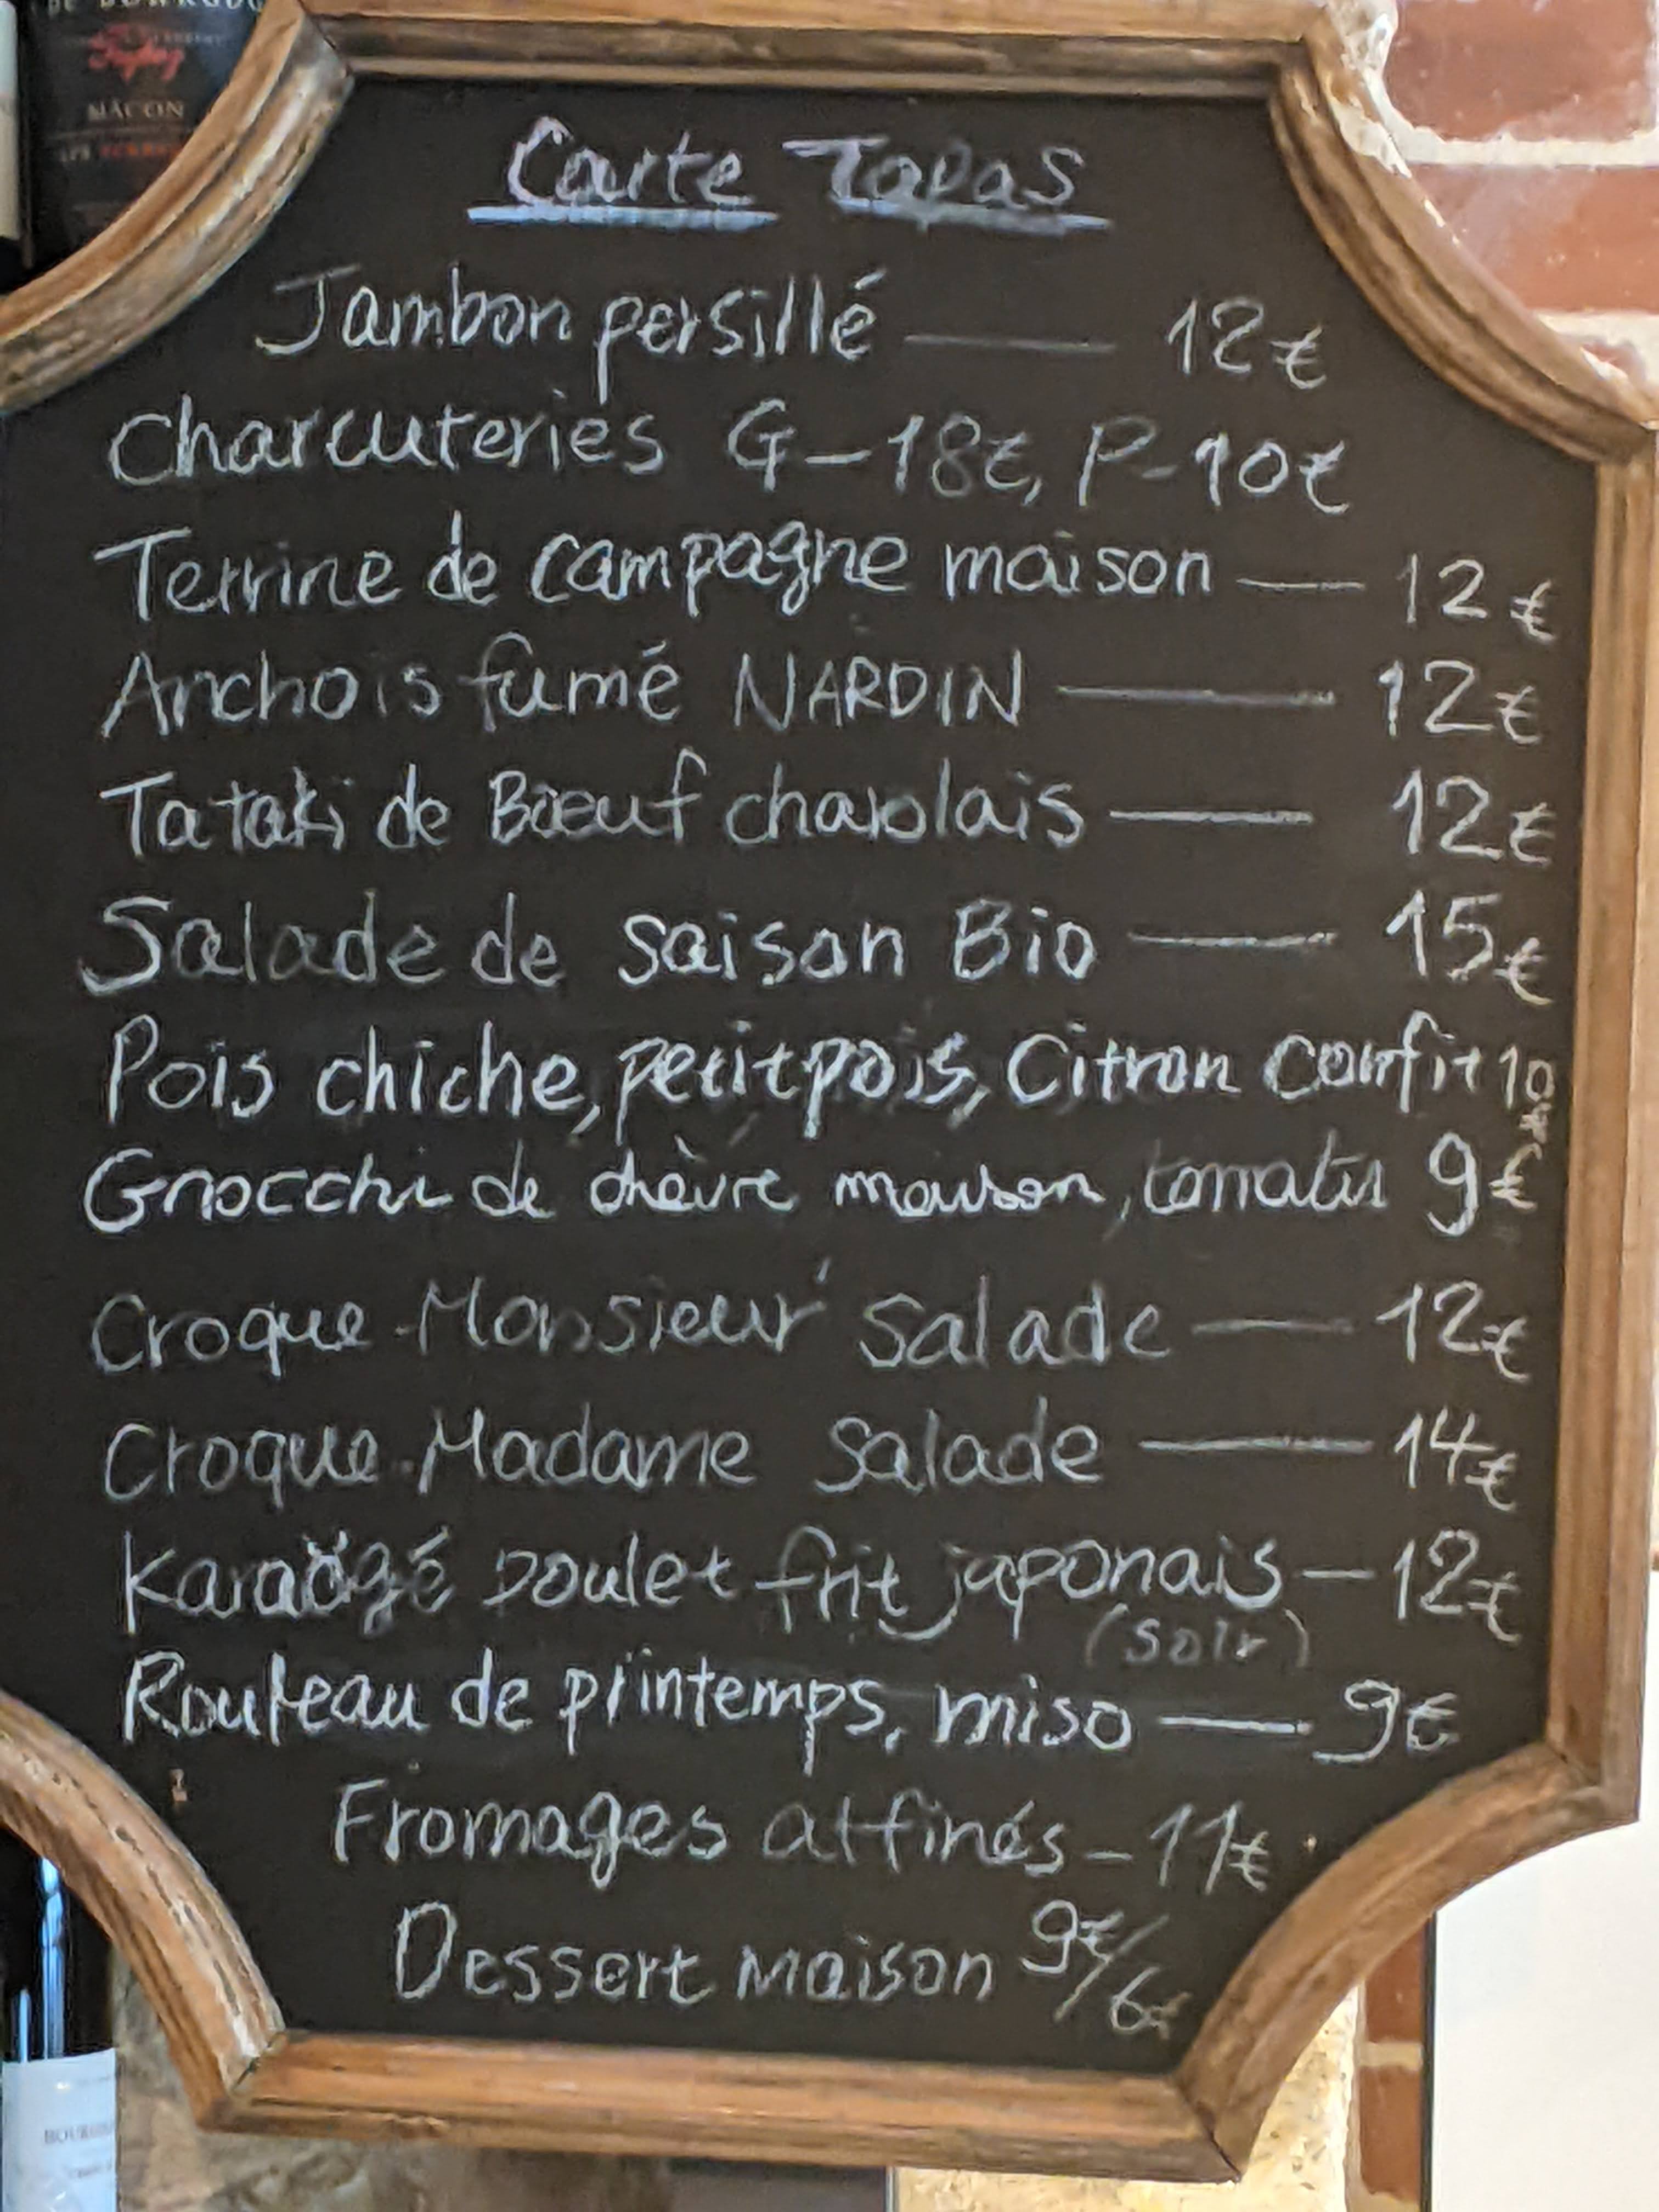 DE BOURGOGNE
MÂCON
Carte Tapas
Jambon persillé — 12€
Charcuteries G-18€, P-10€
Terrine de campagne maison — 12€
Anchois fumé NARDIN — 12€
Tataki de Bœuf charolais — 12€
Salade de saison Bio — 15€
Pois chiche, petit pois, Citron confit 10€
Gnocchi de chèvre maison, tomates 9€
Croque-Monsieur Salade — 12€
Croque-Madame Salade — 14€
Karaägé poulet frit japonais — 12€
(Soir)
Rouleau de printemps, miso — 9€
Fromages affinés - 11€
Dessert maison 9€/6€